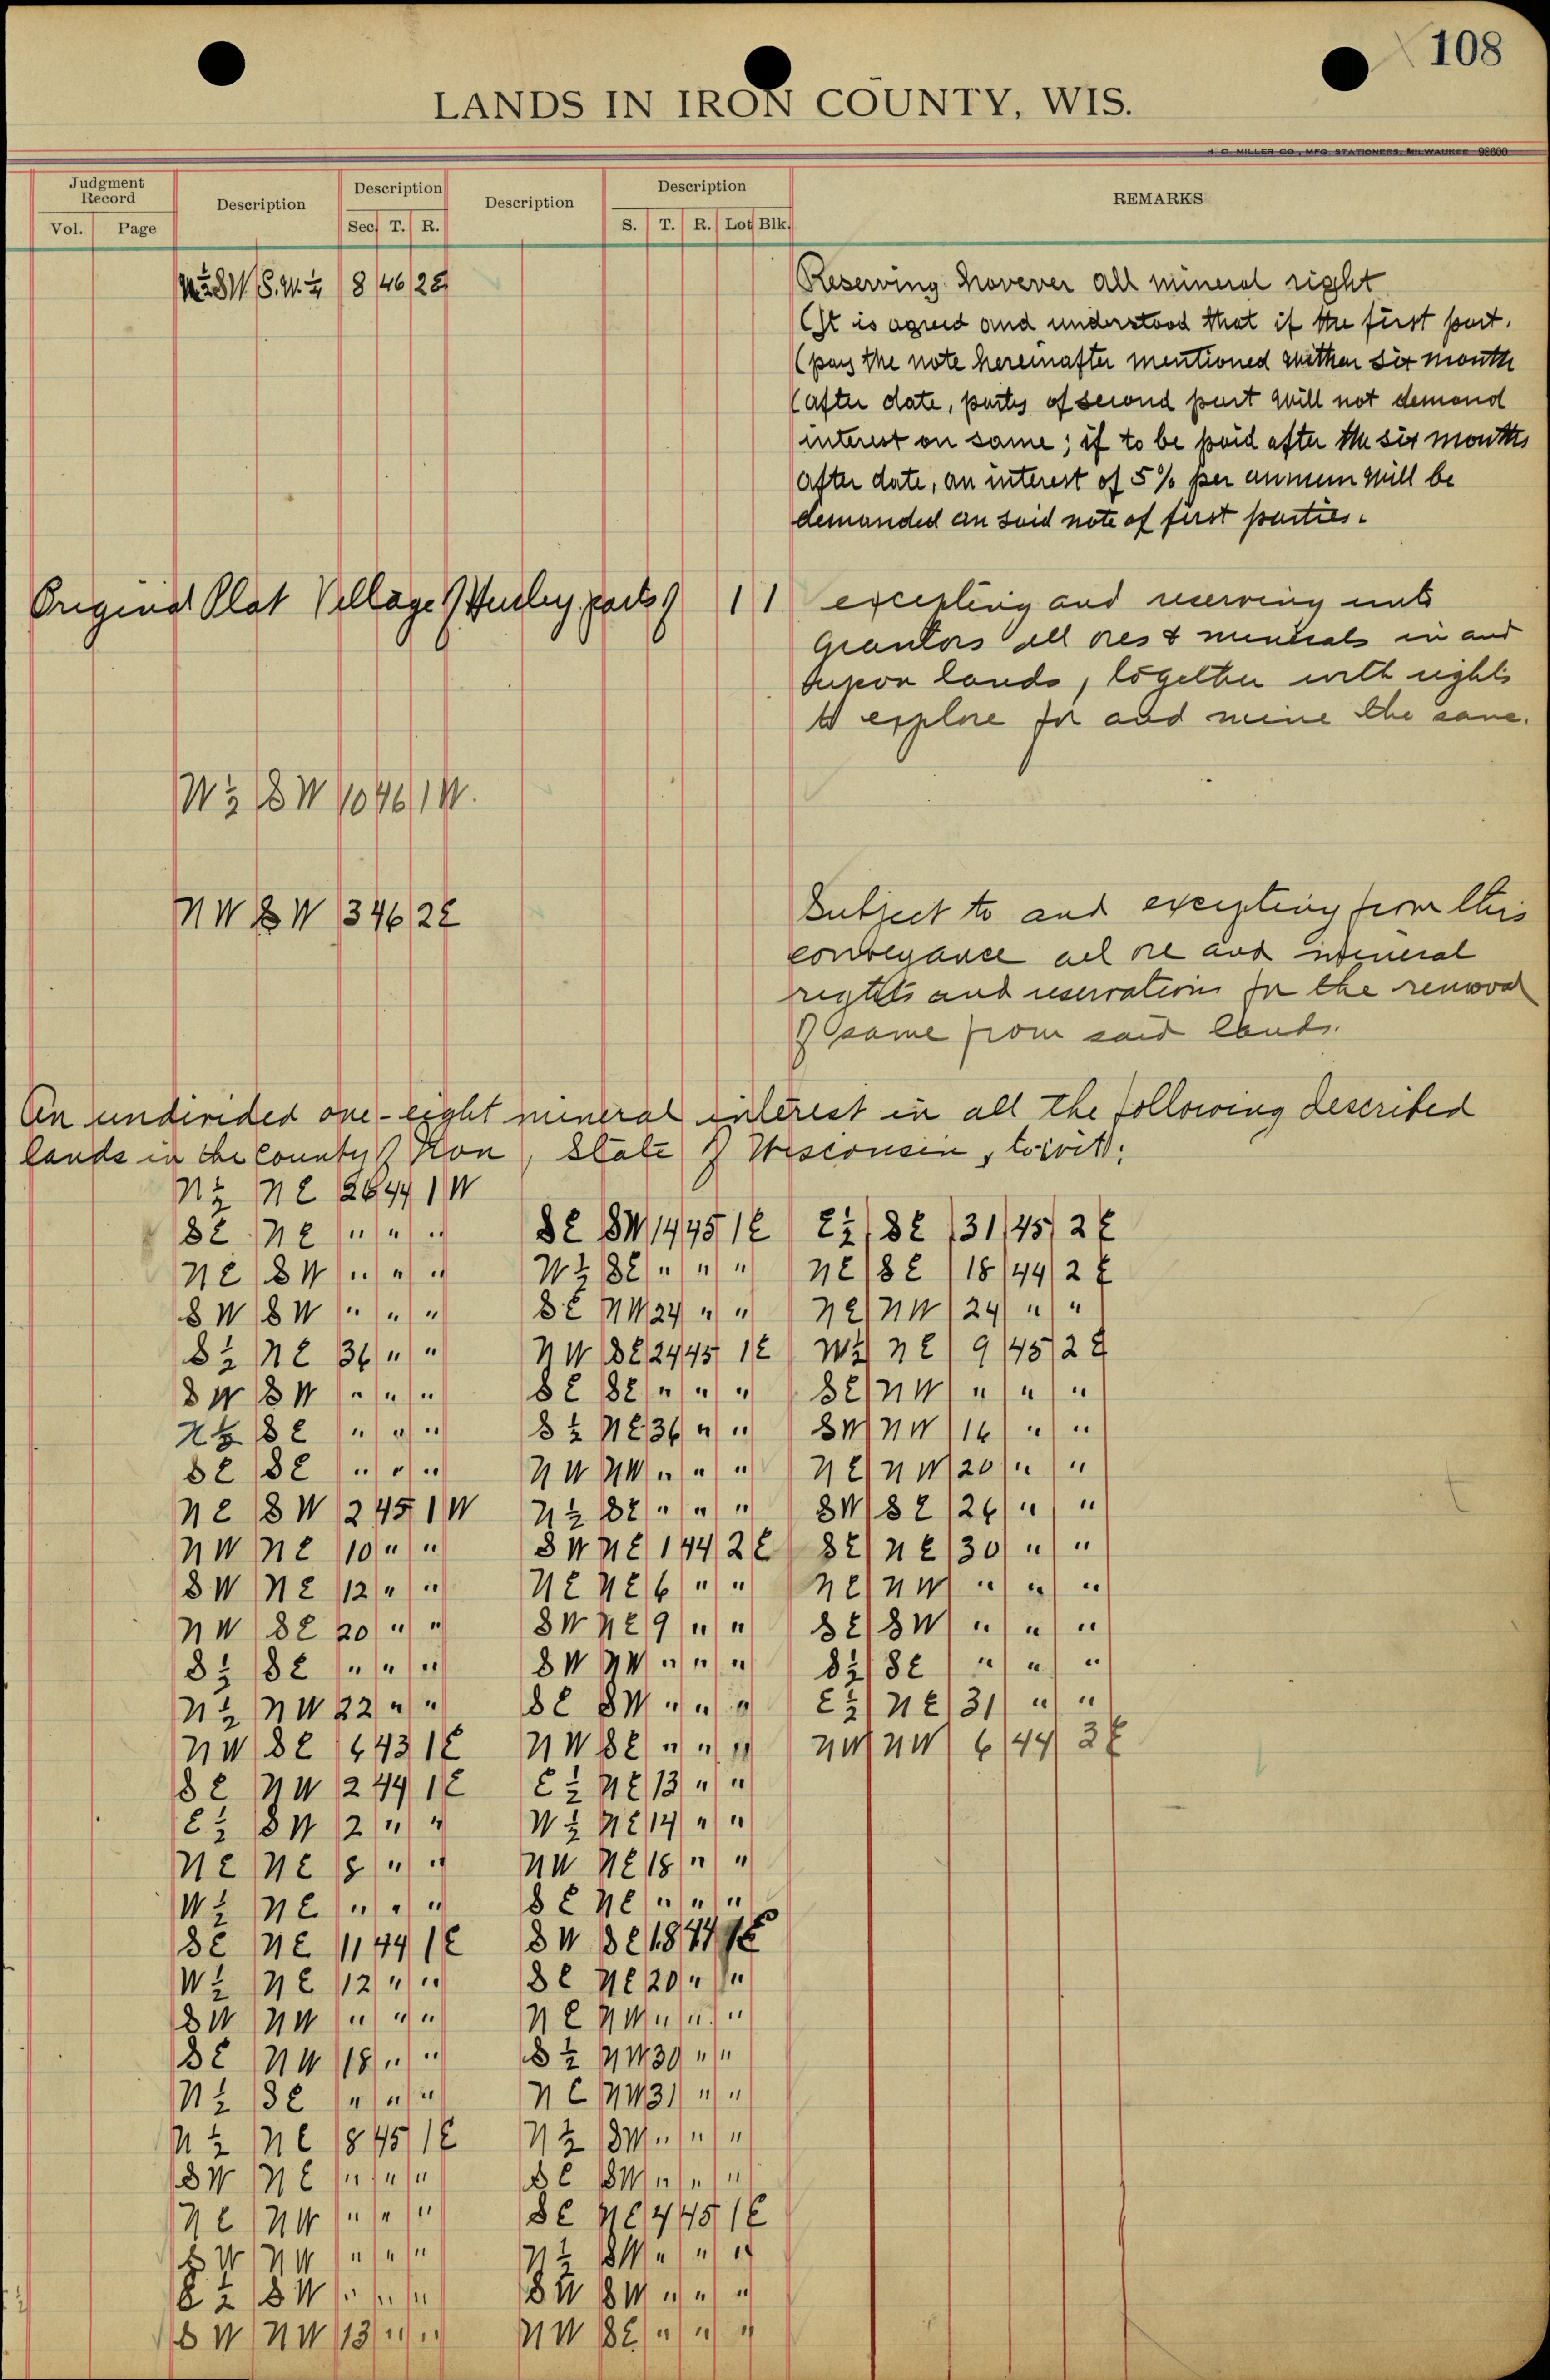 108
LANDS IN IRON COUNTY, WIS.
H. C. MILLER CO., MFG. STATIONERS, MILWAUKEE 98600
Judgment Record
Vol. Page
Description
Description
Sec. T. R.
Description
Description
S. T. R. Lot Blk.
REMARKS
SW S.W. 8 46 2E
Reserving hovever all mineral right
(It is agreed and understood that if the first part.
(pay the note hereinafter mentioned within six month
(after date, partys of second part will not demand
interest on same; if to be paid after the six months
after date, an interest of 5% per annum will be
demanded on said note of first parties.
Original Plat Village of Hurley parts of 1 1
excepting and reserving unto
grantors all ores & minerals in and
upon lands, together with rights
to explore for and mine the same.
W½ SW 10 46 1W.
NW SW 3 46 2E
Subject to and excepting from this
conveyance all ore and mineral
rights and reservations for the removal
of same from said lands.
An undivided one-eight mineral interest in all the following described
lands in the County of Iron, State of Wisconsin, to-wit:
N½ NE 26 44 1W
SE NE " " "
NE SW " " "
SW SW " " "
S½ NE 36 " "
SW SW " " "
N½ SE " " "
SE SE " " "
NE SW 2 45 1W
NW NE 10 " "
SW NE 12 " "
NW SE 20 " "
S½ SE " " "
N½ NW 22 " "
NW SE 6 43 1E
SE NW 2 44 1E
E½ SW 2 " "
NE NE 8 " "
W½ NE " " "
SE NE 11 44 1E
W½ NE 12 " "
SW NW " " "
SE NW 18 " "
N½ SE " " "
N½ NE 8 45 1E
SW NE " " "
NE NW " " "
SW NW " " "
E½ SW " " "
SW NW 13 " "
SE SW 14 45 1E
W½ SE " " "
SE NW 24 " "
NW SE 24 45 1E
SE SE " " "
S½ NE 36 " "
NW NW " " "
N½ SE " " "
SW NE 1 44 2E
NE NE 6 " "
SW NE 9 " "
SW NW " " "
SE SW " " "
NW SE " " "
E½ NE 13 " "
W½ NE 14 " "
NW NE 18 " "
SE NE " " "
SW SE 18 44 2E
SE NE 20 " "
NE NW " " "
S½ NW 30 " "
NE NW 31 " "
N½ SW " " "
SE SW " " "
SE NE 4 45 1E
N½ SW " " "
SW SW " " "
NW SE " " "
E½ SE 31 45 2E
NE SE 18 44 2E
NE NW 24 " "
W½ NE 9 45 2E
SE NW " " "
SW NW 16 " "
NE NW 20 " "
SW SE 26 " "
SE NE 30 " "
NE NW " " "
SE SW " " "
S½ SE " " "
E½ NE 31 " "
NW NW 6 44 3E